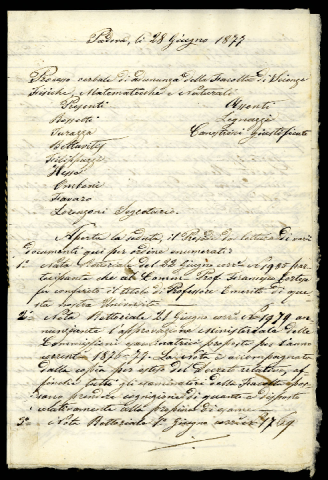 Padova, li 28 Giugno 1877
Processo verbale di adunanza della Facoltà di Scienze
Fisiche, Matematiche e Naturali
Presenti Assenti
Rossetti Legnazzi
Turazza Canestrini giustificato
Bellavitis
Filippuzzi
Omboni
Favaro
Lorenzoni Segretario.
Aperta la seduta, il Preside dà lettura di varii
documenti qui per ordine enumerati:
1° Nota Rettorale 22 Giugno corr. N° 1985 par-
tecipante che al Comm. Prof. Francesco
fu conferito il titolo di Professore Emerito di que-
sta nostra Università
2° Nota Rettorale 21 Giugno corr. N° 1979 an-
nunziante l'approvazione Ministeriale delle
Commissioni esaminatrici proposte per l'anno
corrente 1876-77. La nota è accompagnata
dalla copia per esteso del Decreto relativo, af-
finchè tutti gli esaminatori della Facoltà pos-
sano prendere cognizione di quanto è disposto
relativamente alle propine di esame.
3° Nota Rettorale 1° Giugno corr. N° 1769